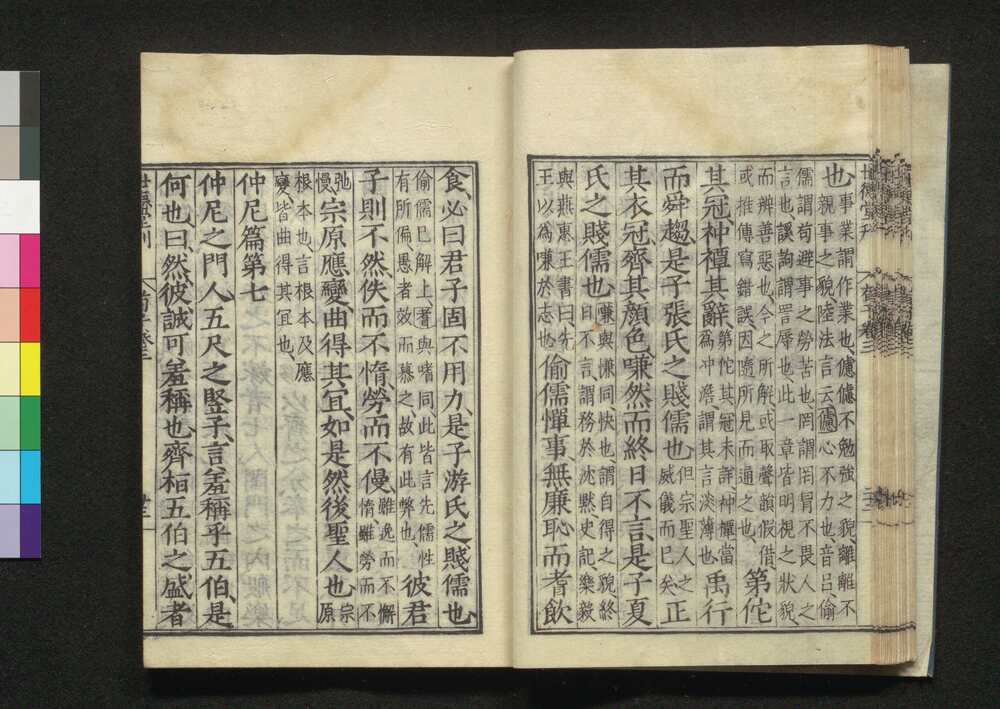 也事業謂作業也儢儢不勉強之貌離離不親事之貌陸法言云儢心不力也音呂偷
儒謂苟避事之勞苦也罔謂罔冒不畏人之言也謑詢謂詈辱也此一章皆明視之狀貌
而辨善惡也今之所解或取聲韻假借或推傳寫錯誤因隨所見而通之也弟佗
其冠衶禫其辭第佗其冠未詳衶禫當為沖澹謂其言淡薄也禹行
而舜趨是子張氏之賤儒也但宗聖人之威儀而已矣正
其衣冠齊其顏色嗛然而終日不言是子夏
氏之賤儒也嗛與慊同快也謂自得之貌終日不言謂務於沈默史記樂毅
與燕惠王書曰先王以為嗛於志也偷儒憚事無廉恥而耆飲
食必曰君子固不用力是子游氏之賤儒也
偷儒已解上耆與嗜同此皆言先儒性有所偏愚者效而慕之故有此弊也彼君
子則不然佚而不惰勞而不僈雖逸而不懈惰雖勞而不
弛慢宗原應變曲得其宜如是然後聖人也宗原
根本也言根本及應變皆曲得其宜也
仲尼篇第七
仲尼之門人五尺之豎子言羞稱乎五伯是
何也曰然彼誠可羞稱也齊桓五伯之盛者